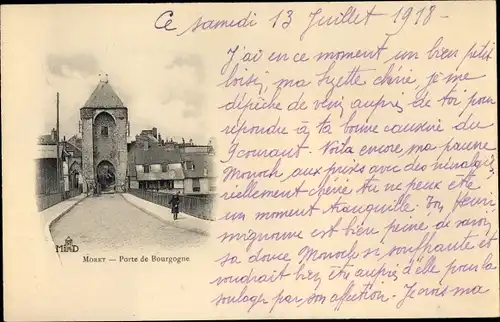 Ce samedi 13 Juillet 1918-
J'ai en ce moment un bien petit
loisir, ma Suzette chérie, je me
dépêche de venir auprès de toi pour
répondre à ta bonne causerie du
9 courant. Voilà encore, ma pauvre
Monoch aux prises avec des névralgies
réellement chérie tu ne peux être
un moment tranquille. Ton
mignonne est bien peinée de savoir
sa douce Monoch si souffrante et
voudrait bien être auprès d'elle pour la
soulager par son affection. Je vois ma
MTILD
MORET — Porte de Bourgogne